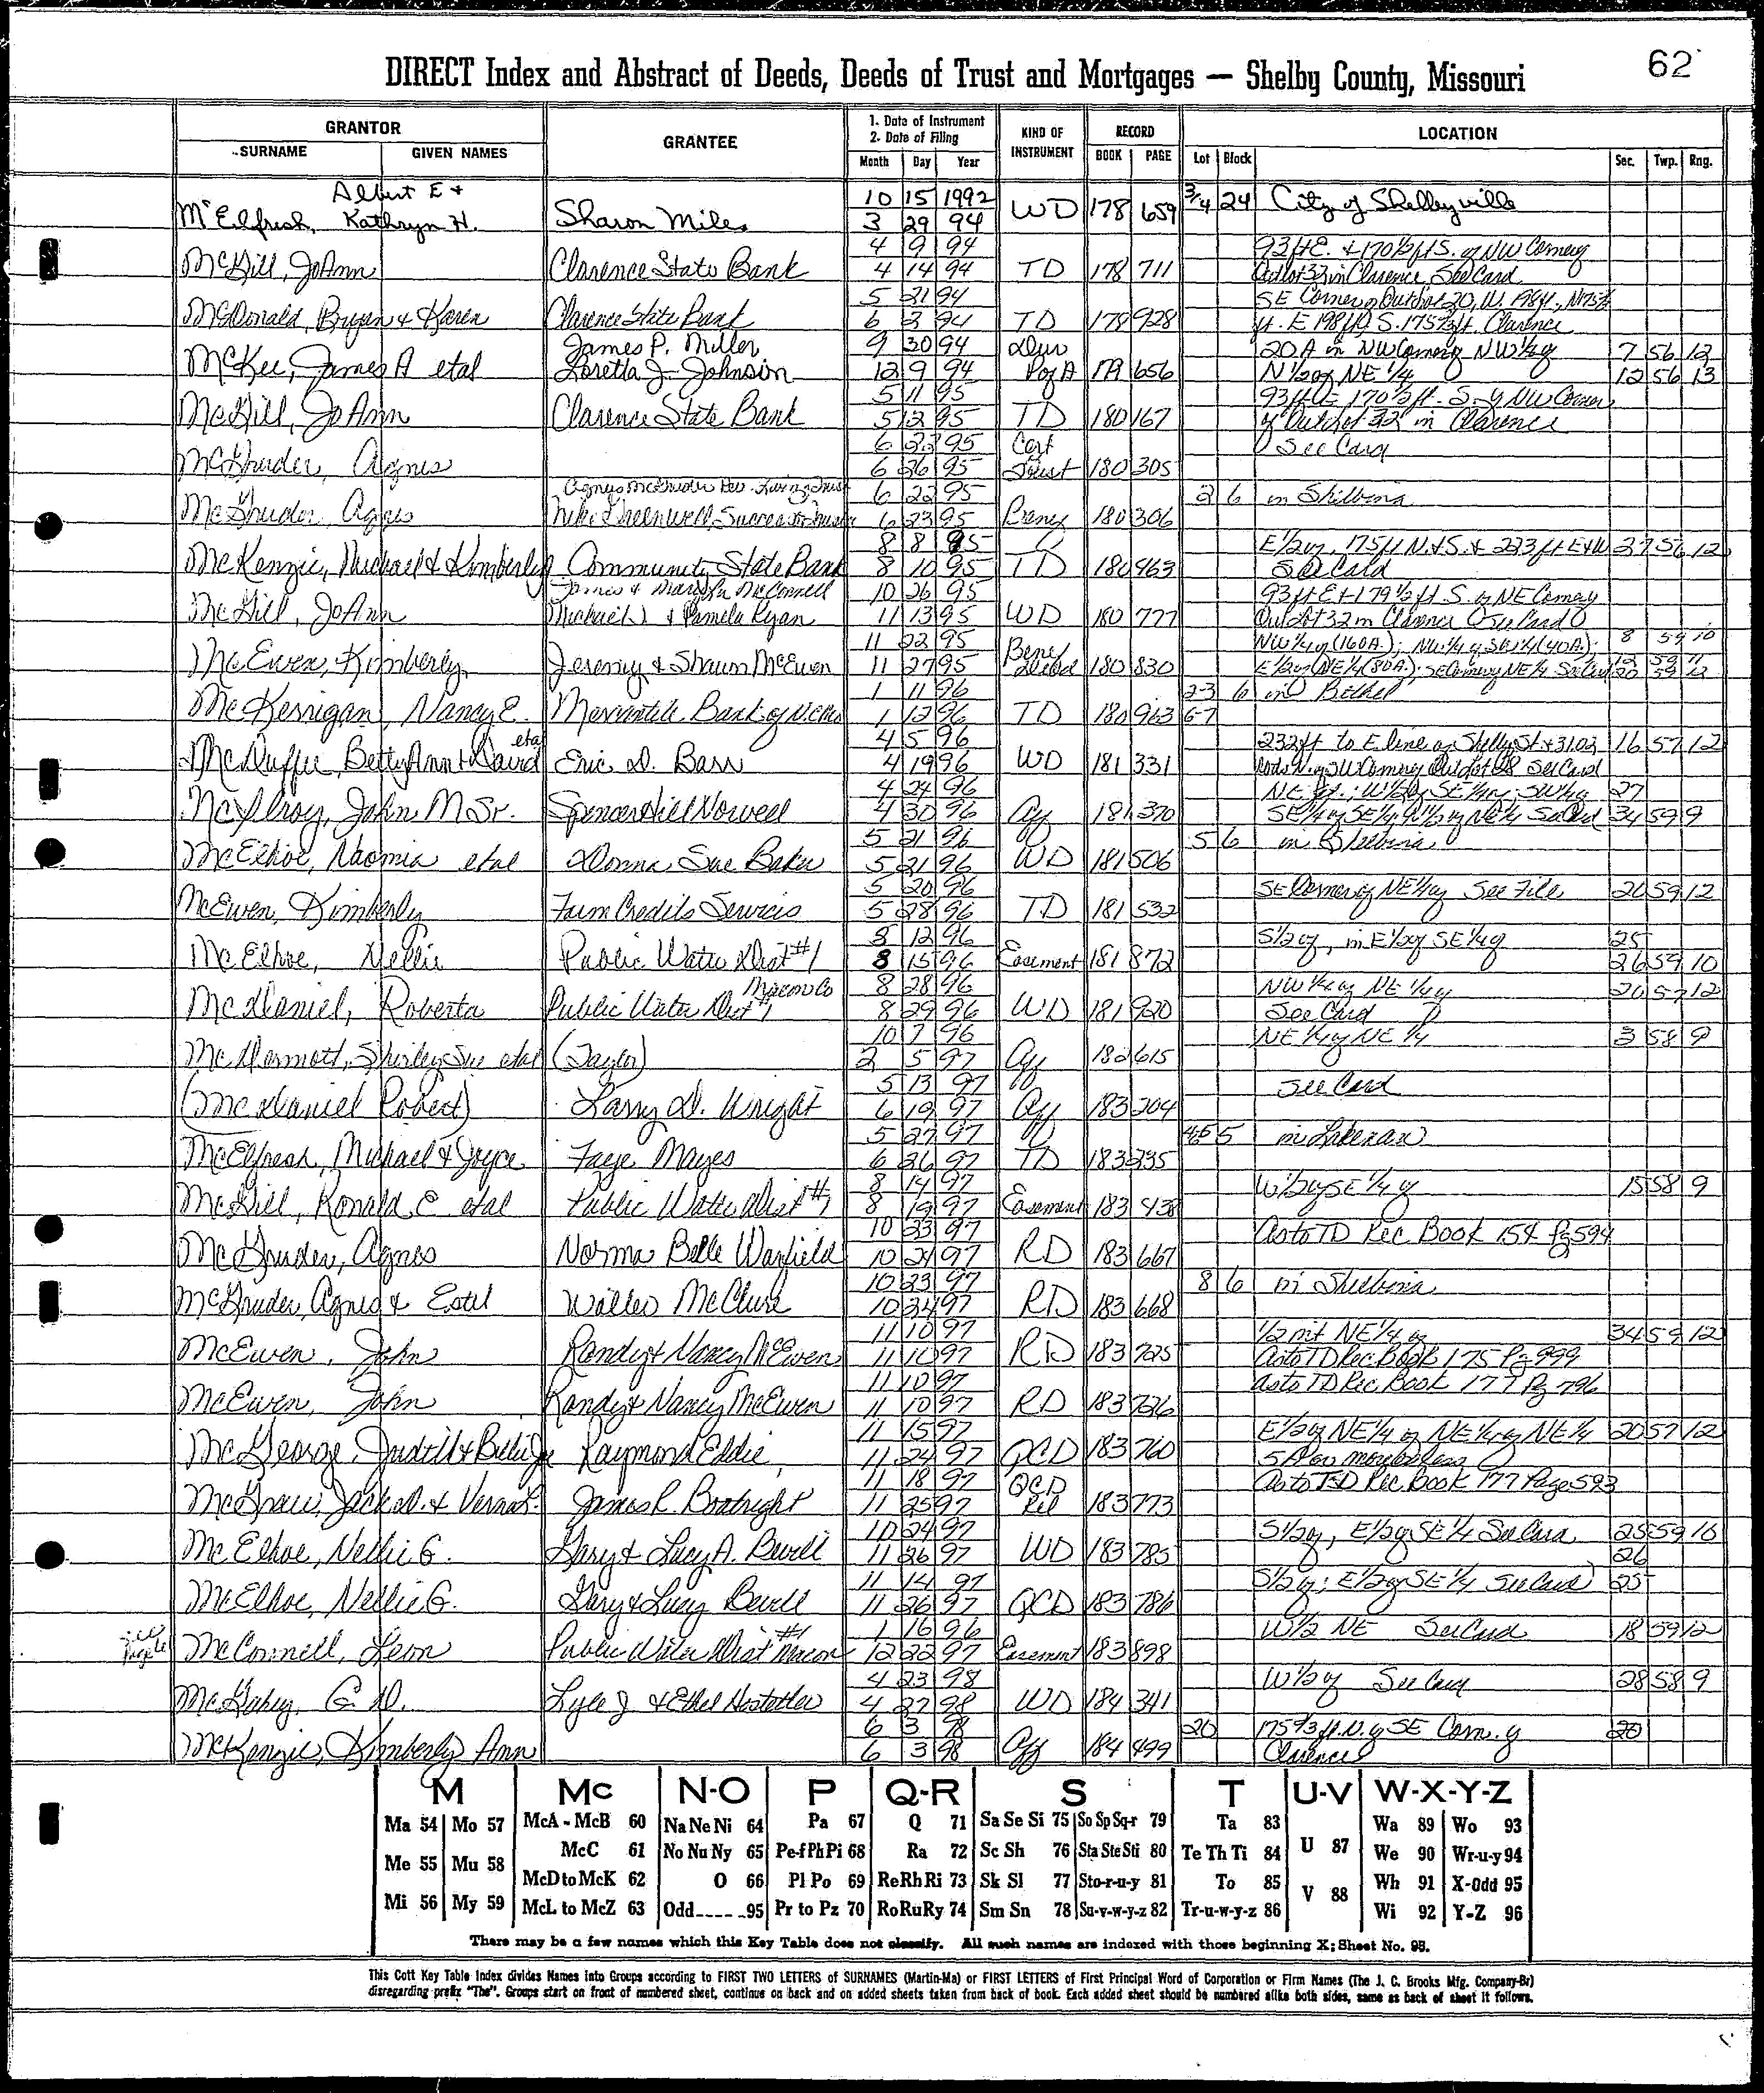 62
DIRECT Index and Abstract of Deeds, Deeds of Trust and Mortgages — Shelby County, Missouri
GRANTOR GRANTEE 1. Date of Instrument 2. Date of Filing KIND OF INSTRUMENT RECORD LOCATION
SURNAME GIVEN NAMES Month Day Year BOOK PAGE Lot Block Sec. Twp. Rng.
Albert E + 10 15 1992 3/4 24 City of Shelbyville
McElfresh, Kathryn H. Sharon Miles 3 29 94 WD 178 659
4 9 94 93 ft E. + 170½ ft S. of NW Corner of
McGill, JoAnn Clarence State Bank 4 14 94 TD 178 711 Outlot 32 in Clarence See Card
5 21 94 SE Corner of Outlot 20, W. 198 ft,
McDonald, Bryan & Karen Clarence State Bank 6 2 94 TD 178 928 ft. E 198 ft, S. 175⅔ ft. Clarence
James P. Miller 9 30 94 Dur 20 A in NW Corner of NW¼ of 7 56 12
McKee, James A etal Loretta J. Johnson 12 9 94 PofA 179 656 N½ of NE¼ 12 56 13
5 11 95 93 ft E 170½ ft. S. of NW Corner
McGill, JoAnn Clarence State Bank 5 12 95 TD 180 167 of Outlot 32 in Clarence
6 23 95 Cert See Card
McGruder, Agnes 6 26 95 Trust 180 305
Agnes McGruder Rev. Living Trust 6 22 95 2 6 in Shelbina
McGruder, Agnes Greenwell, Successor Trustee 6 23 95 180 306
8 8 95 E½ of, 175 ft N.+S. + 223 ft E+W 27 56 12
McKenzie, Michael & Kimberly Community State Bank 8 10 95 TD 180 463 See Card
James & Marilyn McConnell 10 26 95 93 ft E + 179½ ft S. of NE Corner of
McGill, JoAnn Michael & Pamela Ryan 11 13 95 WD 180 777 Outlot 32 in Clarence See Card
11 22 95 Bene NW¼ of (160A); NW¼ of SW¼ (40A); 8 59 10
McEwen, Kimberly Jeremy & Shaun McEwen 11 27 95 Deed 180 830 E½ of NE¼ (80A); SE Corner of NE¼ See Card 20 59 12
1 11 96 2-3 6 in Bethel
McKerrigan, Nancy E. Mercantile Bank of N.C. Mo 1 12 96 TD 180 963 6-7
etal 4 5 96 232 ft to E line of Shelby St + 31.02 16 57 12
McDuffee, Betty Ann & David Eric D. Barr 4 19 96 WD 181 331 Rods N. of SW Corner of Outlot 28 See Card
4 24 96 27
McIlroy, John M Sr. Spencer Hill Nowell 4 30 96 Aff 181 370 34 59 9
5 21 96 5 6 in Shelbina
McElhoe, Naomia etal Donna Sue Baker 5 21 96 WD 181 506
5 20 96 SE Corner of NE¼ of See File 20 59 12
McEwen, Kimberly Farm Credit Services 5 28 96 TD 181 532
8 12 96 S½ of, in E½ of SE¼ of 25
McElhoe, Nellie Public Water Dist #1 8 15 96 Easement 181 872 26 59 10
Macon Co 8 28 96 NW¼ of NE¼ of 20 57 12
McDaniel, Roberta Public Water Dist #1 8 29 96 WD 181 920 See Card
10 7 96 NE¼ of NE¼ 3 58 9
McDermott, Shirley Sue etal (Taylor) 2 5 97 Aff 182 615
5 13 97 See Card
(McDaniel Robert) Larry D. Wright 6 19 97 Aff 183 204
5 27 97 4&5 5 in Lakenan
McElfresh, Michael & Joyce Faye Mayes 6 26 97 TD 183 235
8 14 97 W½ of SE¼ of 15 58 9
McGill, Ronald E etal Public Water Dist #1 8 19 97 Easement 183 438
10 23 97 As to TD Rec Book 154 Pg 594
McGruder, Agnes Norma Belle Warfield 10 24 97 RD 183 667
10 23 97 8 6 in Shelbina
McGruder, Agnes & Estel Willes McClure 10 24 97 RD 183 668
11 10 97 ½ int NE¼ of 34 59 12
McEwen, John Randy & Nancy McEwen 11 10 97 RD 183 725 As to TD Rec Book 175 Pg 999
11 10 97 As to TD Rec Book 177 Pg 796
McEwen, John Randy & Nancy McEwen 11 10 97 RD 183 726
11 15 97 E½ of NE¼ of NE¼ of NE¼ 20 57 12
McGeorge, Judith & Billie Joe Raymond Eddie 11 24 97 QCD 183 760 5 A or more or less
11 18 97 QCD As to TD Rec Book 177 Page 593
McGraw, Jack D. & Verna L. James R. Boatright 11 25 97 Rel 183 773
10 24 97 S½ of, E½ of SE¼ See Card 25 59 10
McElhoe, Nellie G. Gary & Lucy A. Bevill 11 26 97 WD 183 785 26
11 14 97 S½ of; E½ of SE¼ See Card 25
McElhoe, Nellie G. Gary & Lucy Bevill 11 26 97 QCD 183 786
1 16 96 W½ NE See Card 18 59 12
McConnell, Leon Public Water Dist #1 Macon 12 22 97 Easement 183 898
4 23 98 W½ of See Card 28 58 9
G. D. Lyle J. & Ethel Hostetler 4 27 98 WD 184 341
6 3 98 20 175⅔ ft. N. of SE Corn. of 20
McKenzie, Kimberly Ann 6 3 98 Aff 184 499 Clarence
M Mc N-O P Q-R S T U-V W-X-Y-Z
Ma 54 Mo 57 McA - McB 60 Na Ne Ni 64 Pa 67 Q 71 Sa Se Si 75 So Sp Sq-r 79 Ta 83 Wa 89 Wo 93
Me 55 Mu 58 McC 61 No Nu Ny 65 Pe-f Ph Pi 68 Ra 72 Sc Sh 76 Sta Ste Sti 80 Te Th Ti 84 U 87 We 90 Wr-u-y 94
McD to McK 62 O 66 Pl Po 69 Re Rh Ri 73 Sk Sl 77 Sto-r-u-y 81 To 85 V 88 Wh 91 X-Odd 95
Mi 56 My 59 McL to McZ 63 Odd 95 Pr to Pz 70 Ro Ru Ry 74 Sm Sn 78 Su-v-w-y-z 82 Tr-u-w-y-z 86 Wi 92 Y-Z 96
There may be a few names which this Key Table does not classify. All such names are indexed with those beginning X; Sheet No. 95.
This Cott Key Table Index divides Names into Groups according to FIRST TWO LETTERS of SURNAMES (Martin-Ma) or FIRST LETTERS of First Principal Word of Corporation or Firm Names (The J. C. Brooks Mfg. Company-Br)
disregarding prefix "The". Groups start on front of numbered sheet, continue on back and on added sheets taken from back of book. Each added sheet should be numbered alike both sides, same as back of sheet it follows.